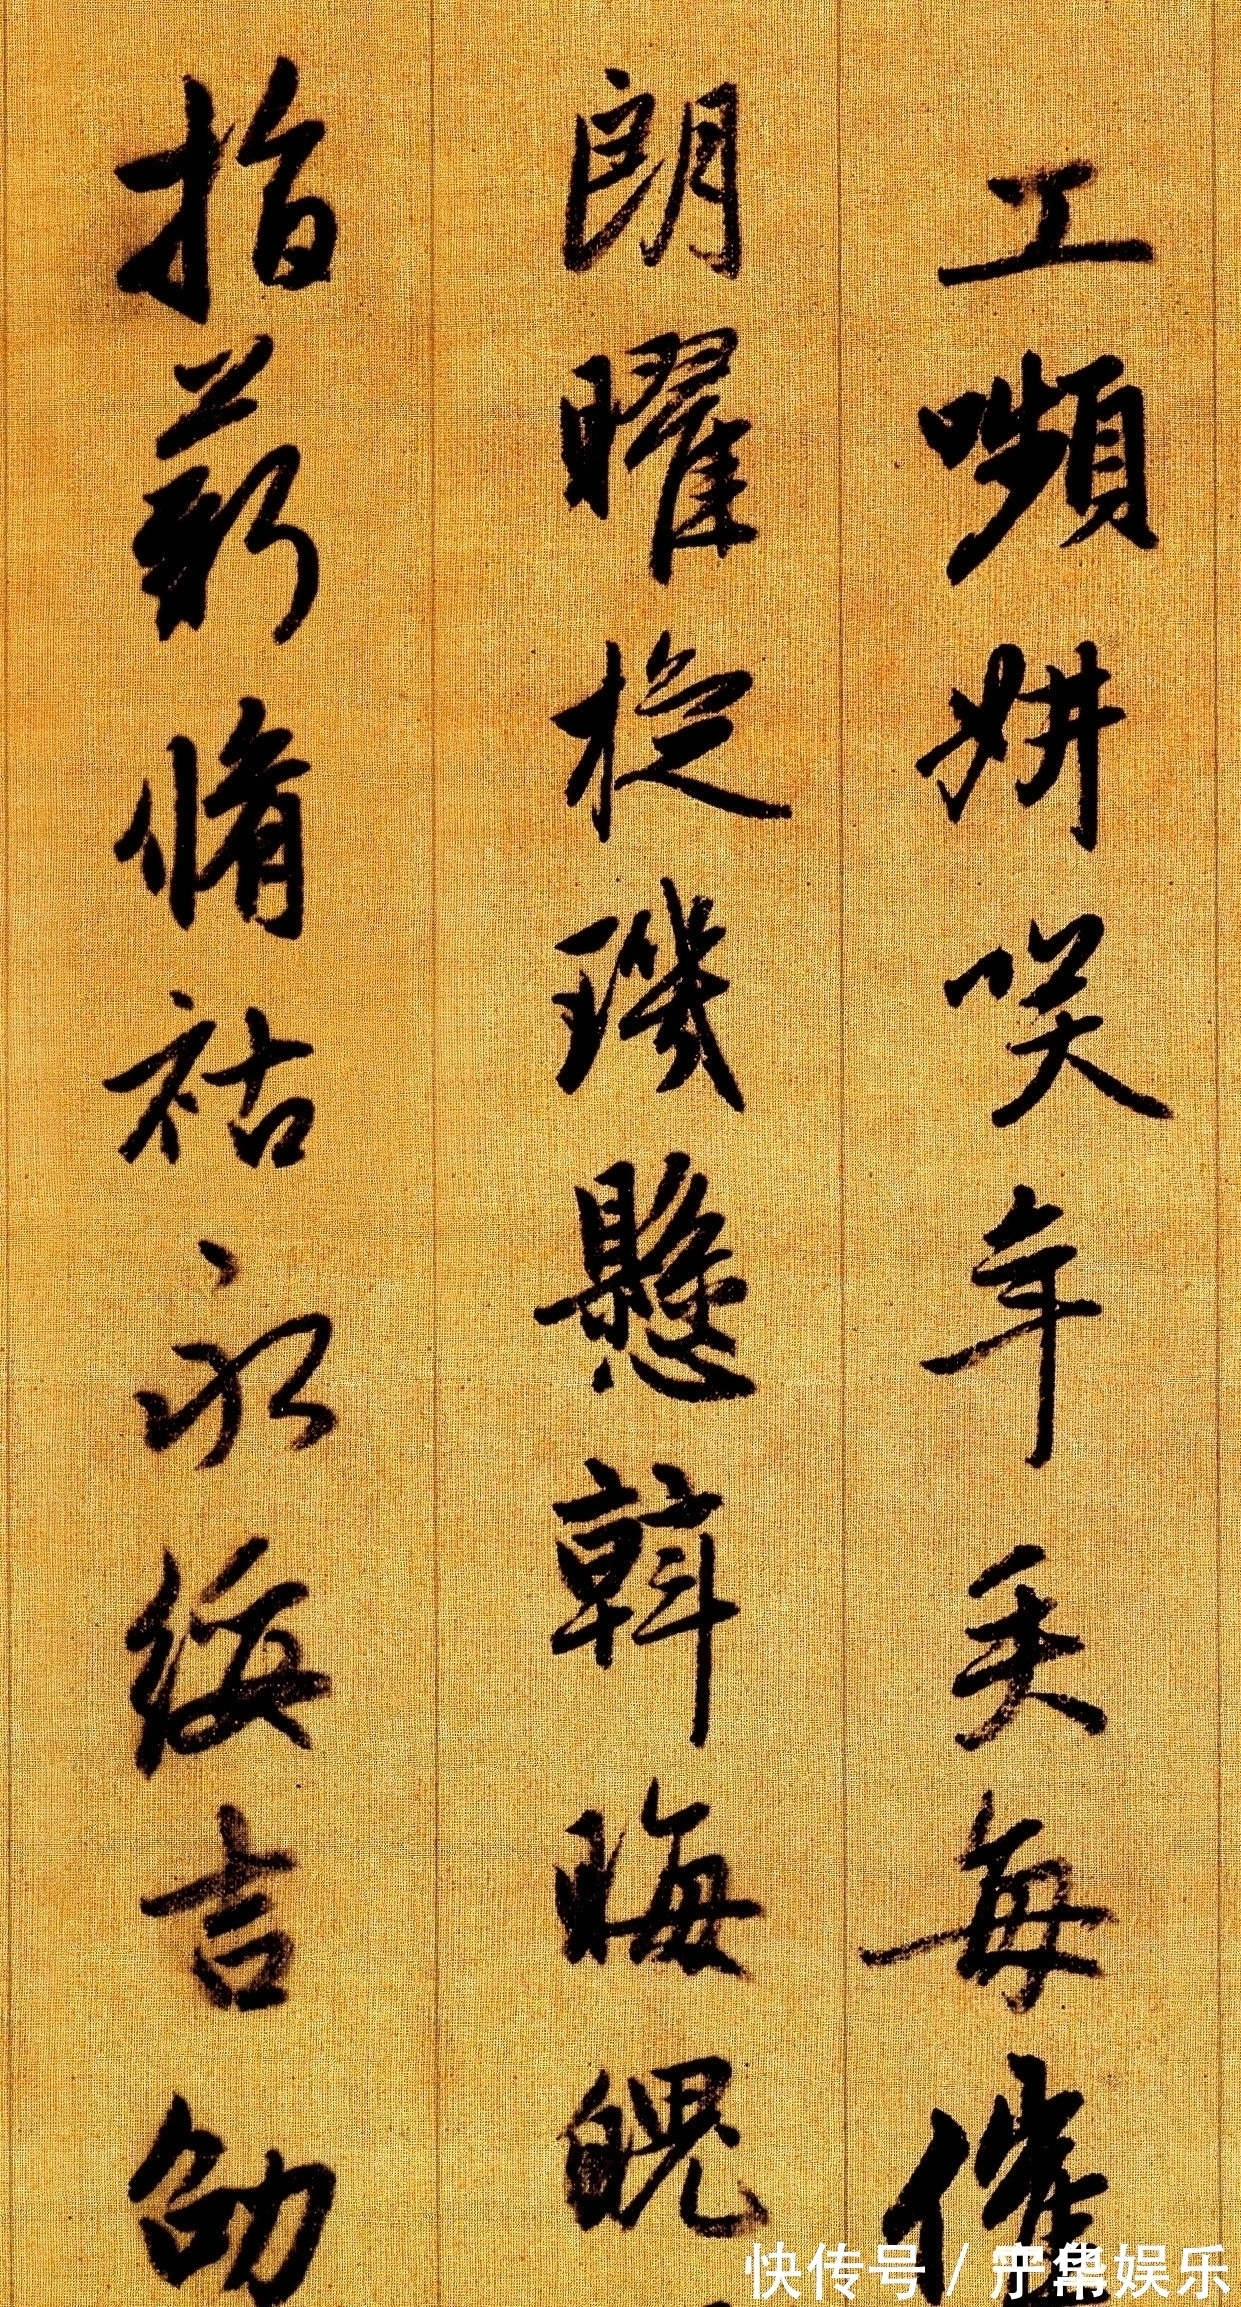 工嚬妍咲年矢每催
朗曜旋璣懸斡晦魄
指薪脩祜永綏吉劭
快传号 / 娱乐